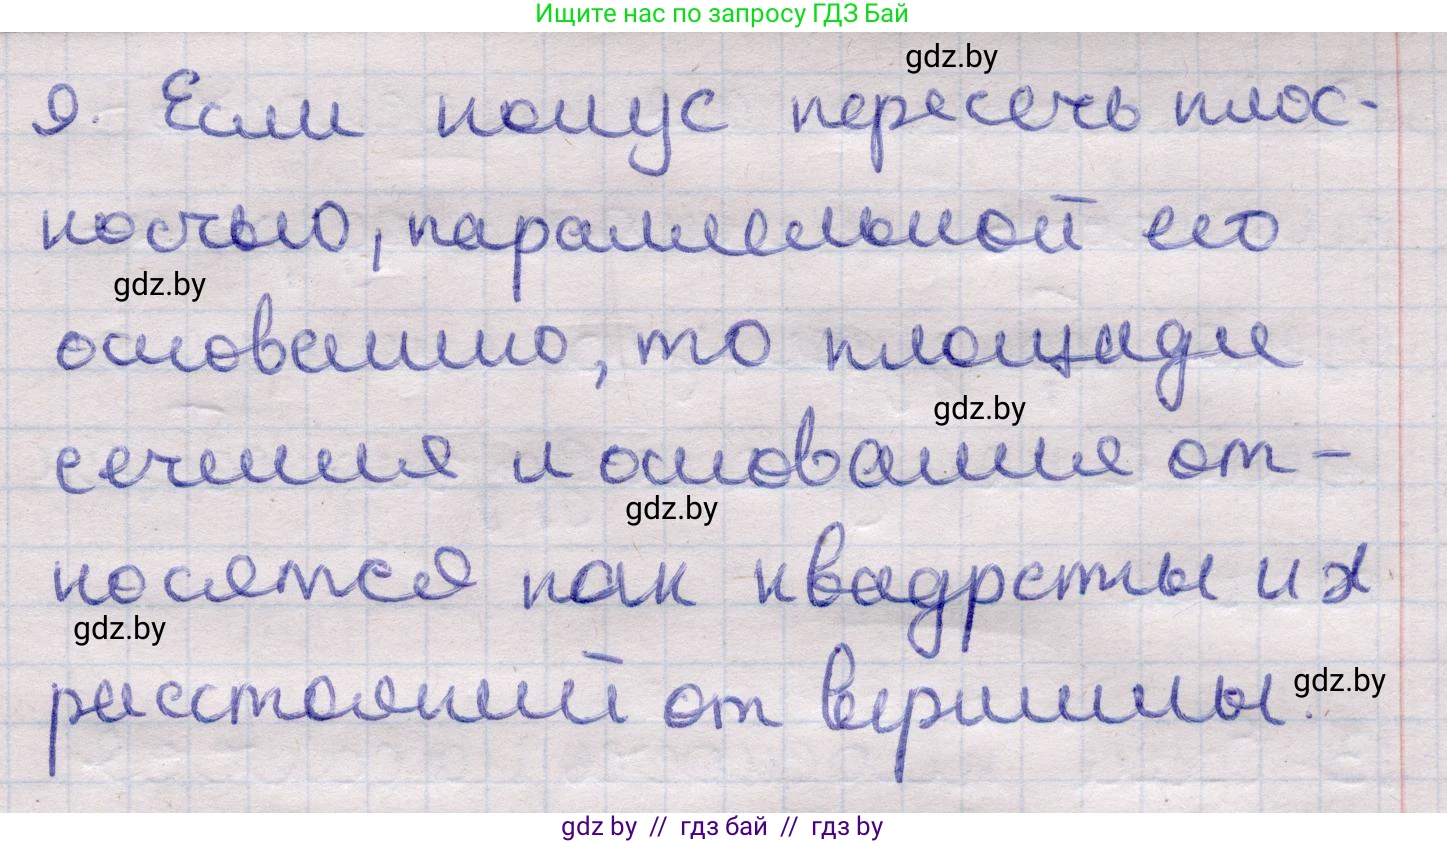 Ищите нас по запросу ГДЗ Бай
gdz.by
9. Если конус пересечь плос-
костью, параллельной его
gdz.by
основанию, то площади
gdz.by
сечения и основания от-
gdz.by
носятся как квадраты их
gdz.by
расстояний от вершины.
gdz.by
gdz by // гдз бай // гдз by